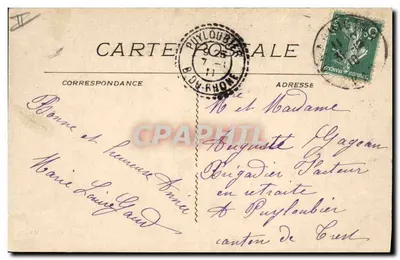 II
CARTE POSTALE
PUYLOUBIER
B. DU-RHONE
CORRESPONDANCE
ADRESSE
Bonne et heureuse Année
Marie Louise Gaud
M et Madame
Auguste
Brigadier Facteur
en retraite
A Puyloubier
canton de Trest
Cparama